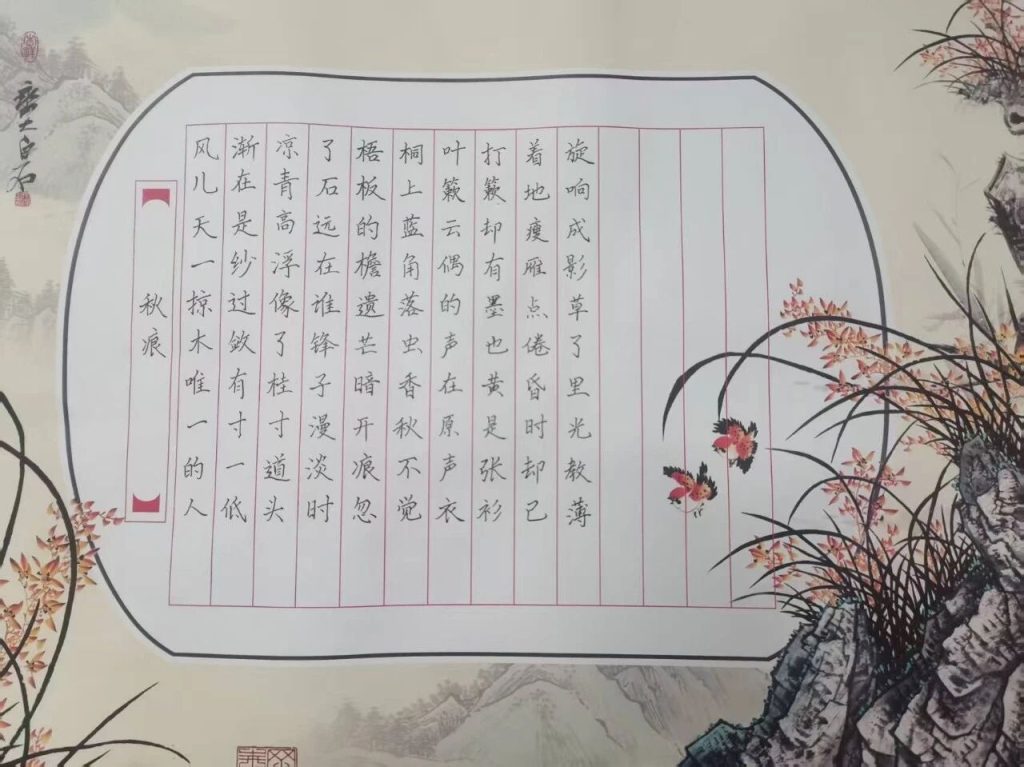 秋痕
风渐凉了梧桐叶打着旋
儿在青石板上簌簌地响
天是高远的蓝云却瘦成
一纱浮在檐角偶有雁影
掠过像谁遗落的墨点草
木敛了锋芒虫声也倦了
唯有桂子暗香在黄昏里
一寸寸漫开秋原是时光
的一道淡痕不声张却教
人低头时忽觉衣衫已薄